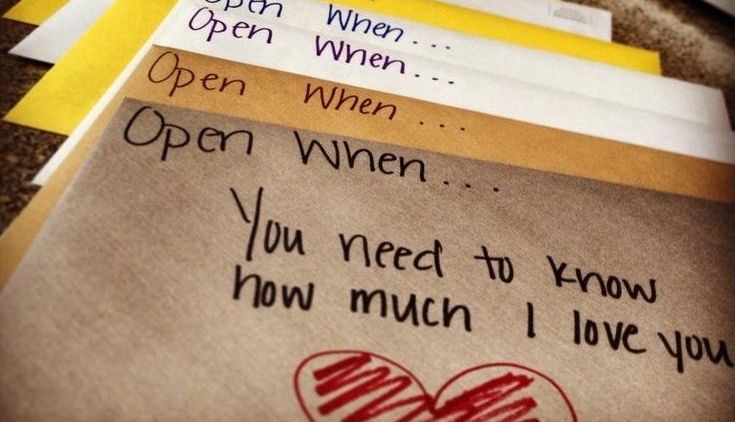 Open When...
Open When...
Open When...
Open When...
You need to know
how much I love you